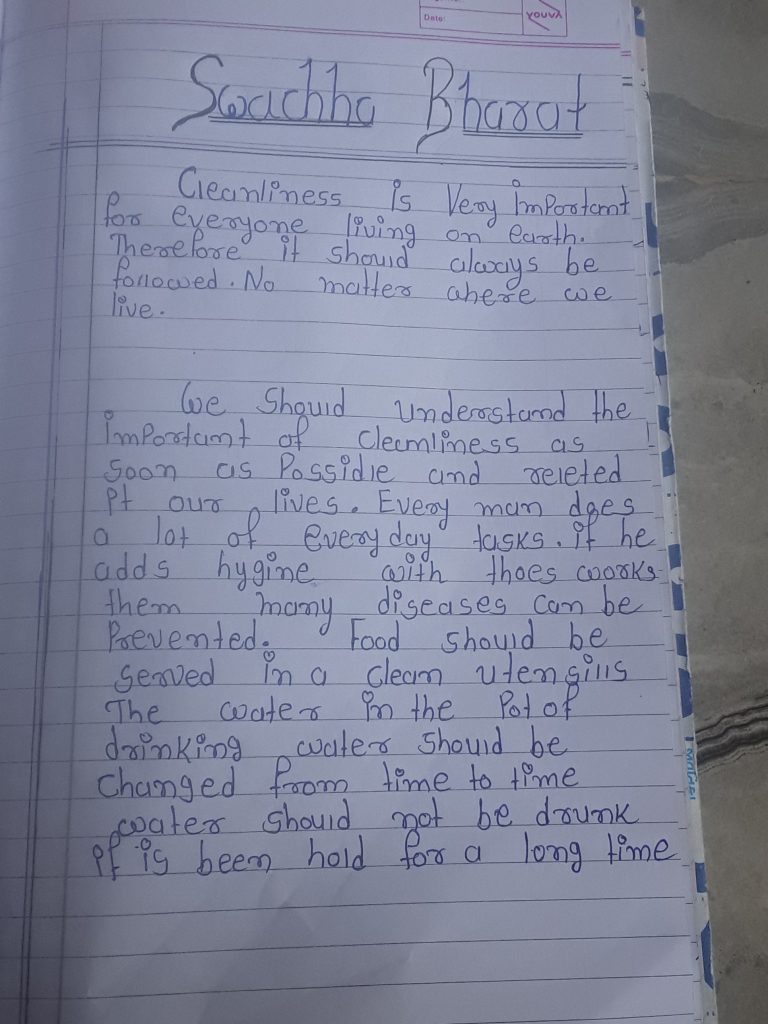 Date:
YOUVA
Swachha Bharat
Cleanliness is very important
for everyone living on earth.
Therefore it should always be
followed. No matter where we
live.
We should understand the
important of cleanliness as
soon as Possidle and releted
Pt our lives. Every man does
a lot of everyday tasks. if he
adds hygine with thoes works
them many diseases can be
Prevented. Food should be
served in a clean utensills
The water in the Pot of
drinking water should be
changed from time to time
water should not be drunk
if is been hold for a long time